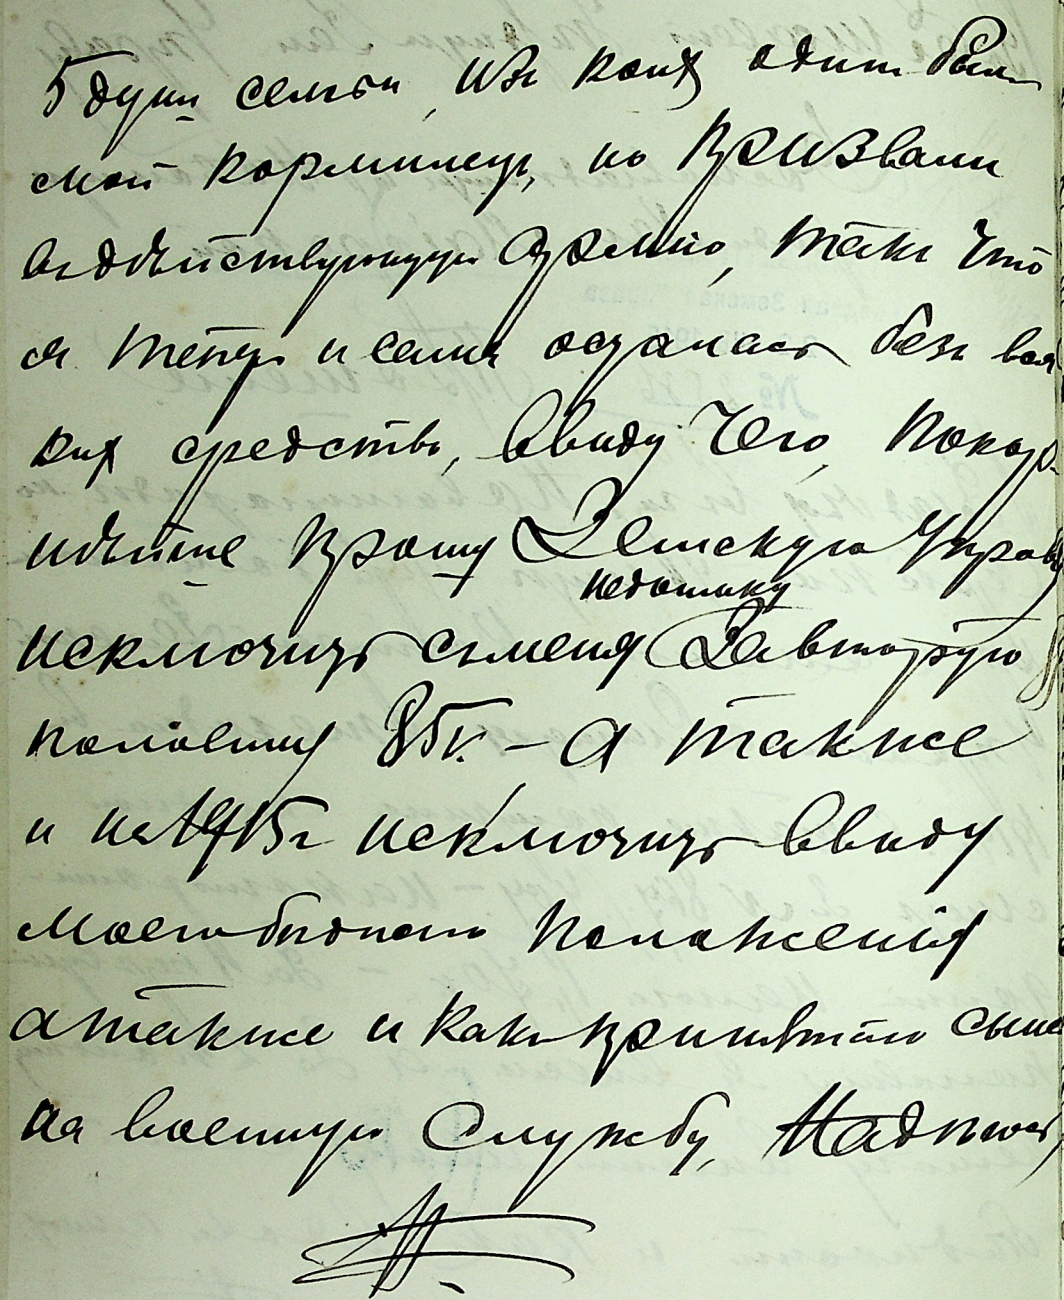 5 душ семьи, изъ коих один был
мой кормилец, но призвали
въ действующую Армію, такъ что
я теперь и семя осталась безъ вся
ких средствъ, Ввиду Чего, Покор
нѣйше прошу Земскую Управу
недоимку
исключить съ меня За вторую
половину г. – А также
и на 1915 г исключить Ввиду
моего бѣднаго положенія
а также и какъ принятаго сына
на военную Службу,